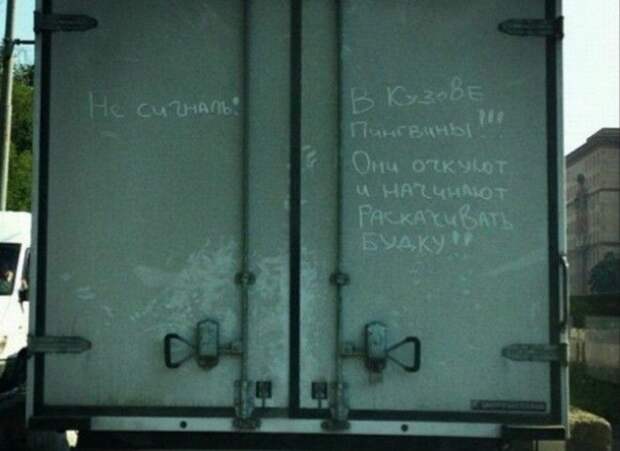 Не сигналь!
В КУЗОВЕ
Пингвины!!!
Они очкуют
и начинают
Раскачивать
БУДКУ!!